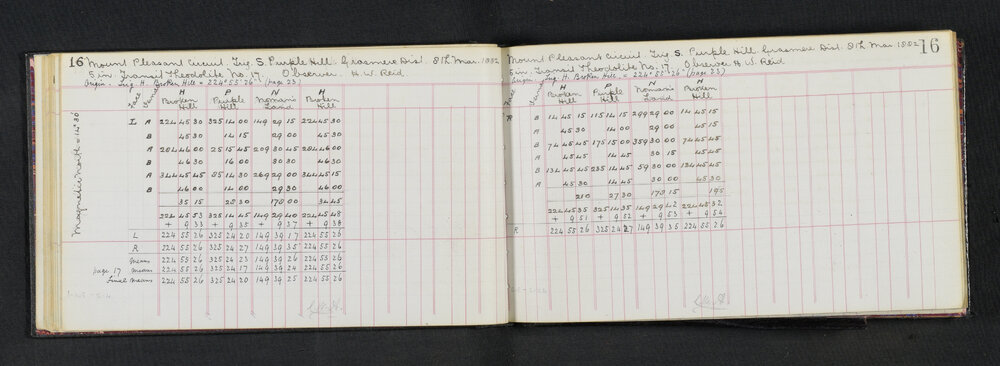 16 Mount Pleasant Circuit. Trig. S Purple Hill. Grasmere Dist. 8th Mar. 1882
5 in Transit Theodolite No. 17. Observer H W Reid
Origin. Trig. H. Broken Hill = 224° 55' 26" (page 23)
Face Vernier H Broken Hill P Purple Hill N Nomans Land H Broken Hill
Magnetic North = 14° 30'
L A 224 45 30 325 14 00 149 29 15 224 45 30
B 45 30 14 15 29 00 45 30
A 284 46 00 25 15 45 209 30 45 284 46 00
B 46 30 16 00 30 30 46 30
A 344 45 45 85 14 30 269 29 00 344 45 15
B 46 00 14 00 29 30 46 00
35 15 28 30 178 00 34 45
224 45 53 325 14 45 149 29 40 224 45 48
+ 9 33 + 9 35 + 9 37 + 9 38
L 224 55 26 325 24 20 149 39 17 224 55 26
R 224 55 26 325 24 27 149 39 35 224 55 26
Means 224 55 26 325 24 23 149 39 26 224 55 26
page 17 Means 224 55 26 325 24 17 149 39 24 224 55 26
Final Means 224 55 26 325 24 20 149 39 25 224 55 26
Mount Pleasant Circuit Trig S. Purple Hill Grasmere Dist. 8th Mar. 1882 16
5 in. Transit Theodolite No. 17. Observer H W Reid
Origin Trig H. Broken Hill = 224° 55' 26" (page 23)
Face H Broken Hill P Purple Hill N Nomans Land H Broken Hill
R B 14 45 15 115 14 15 299 29 00 14 45 15
A 45 30 14 00 29 00 45 15
B 74 45 45 175 15 00 359 30 00 74 45 45
A 45 45 14 45 30 15 45 45
B 134 45 45 235 14 45 59 30 00 134 45 45
A 45 30 14 45 30 00 45 30
210 27 30 178 15 195
224 45 35 325 14 35 149 29 42 224 45 32
+ 9 51 + 9 52 + 9 53 + 9 54
R 224 55 26 325 24 27 149 39 35 224 55 26